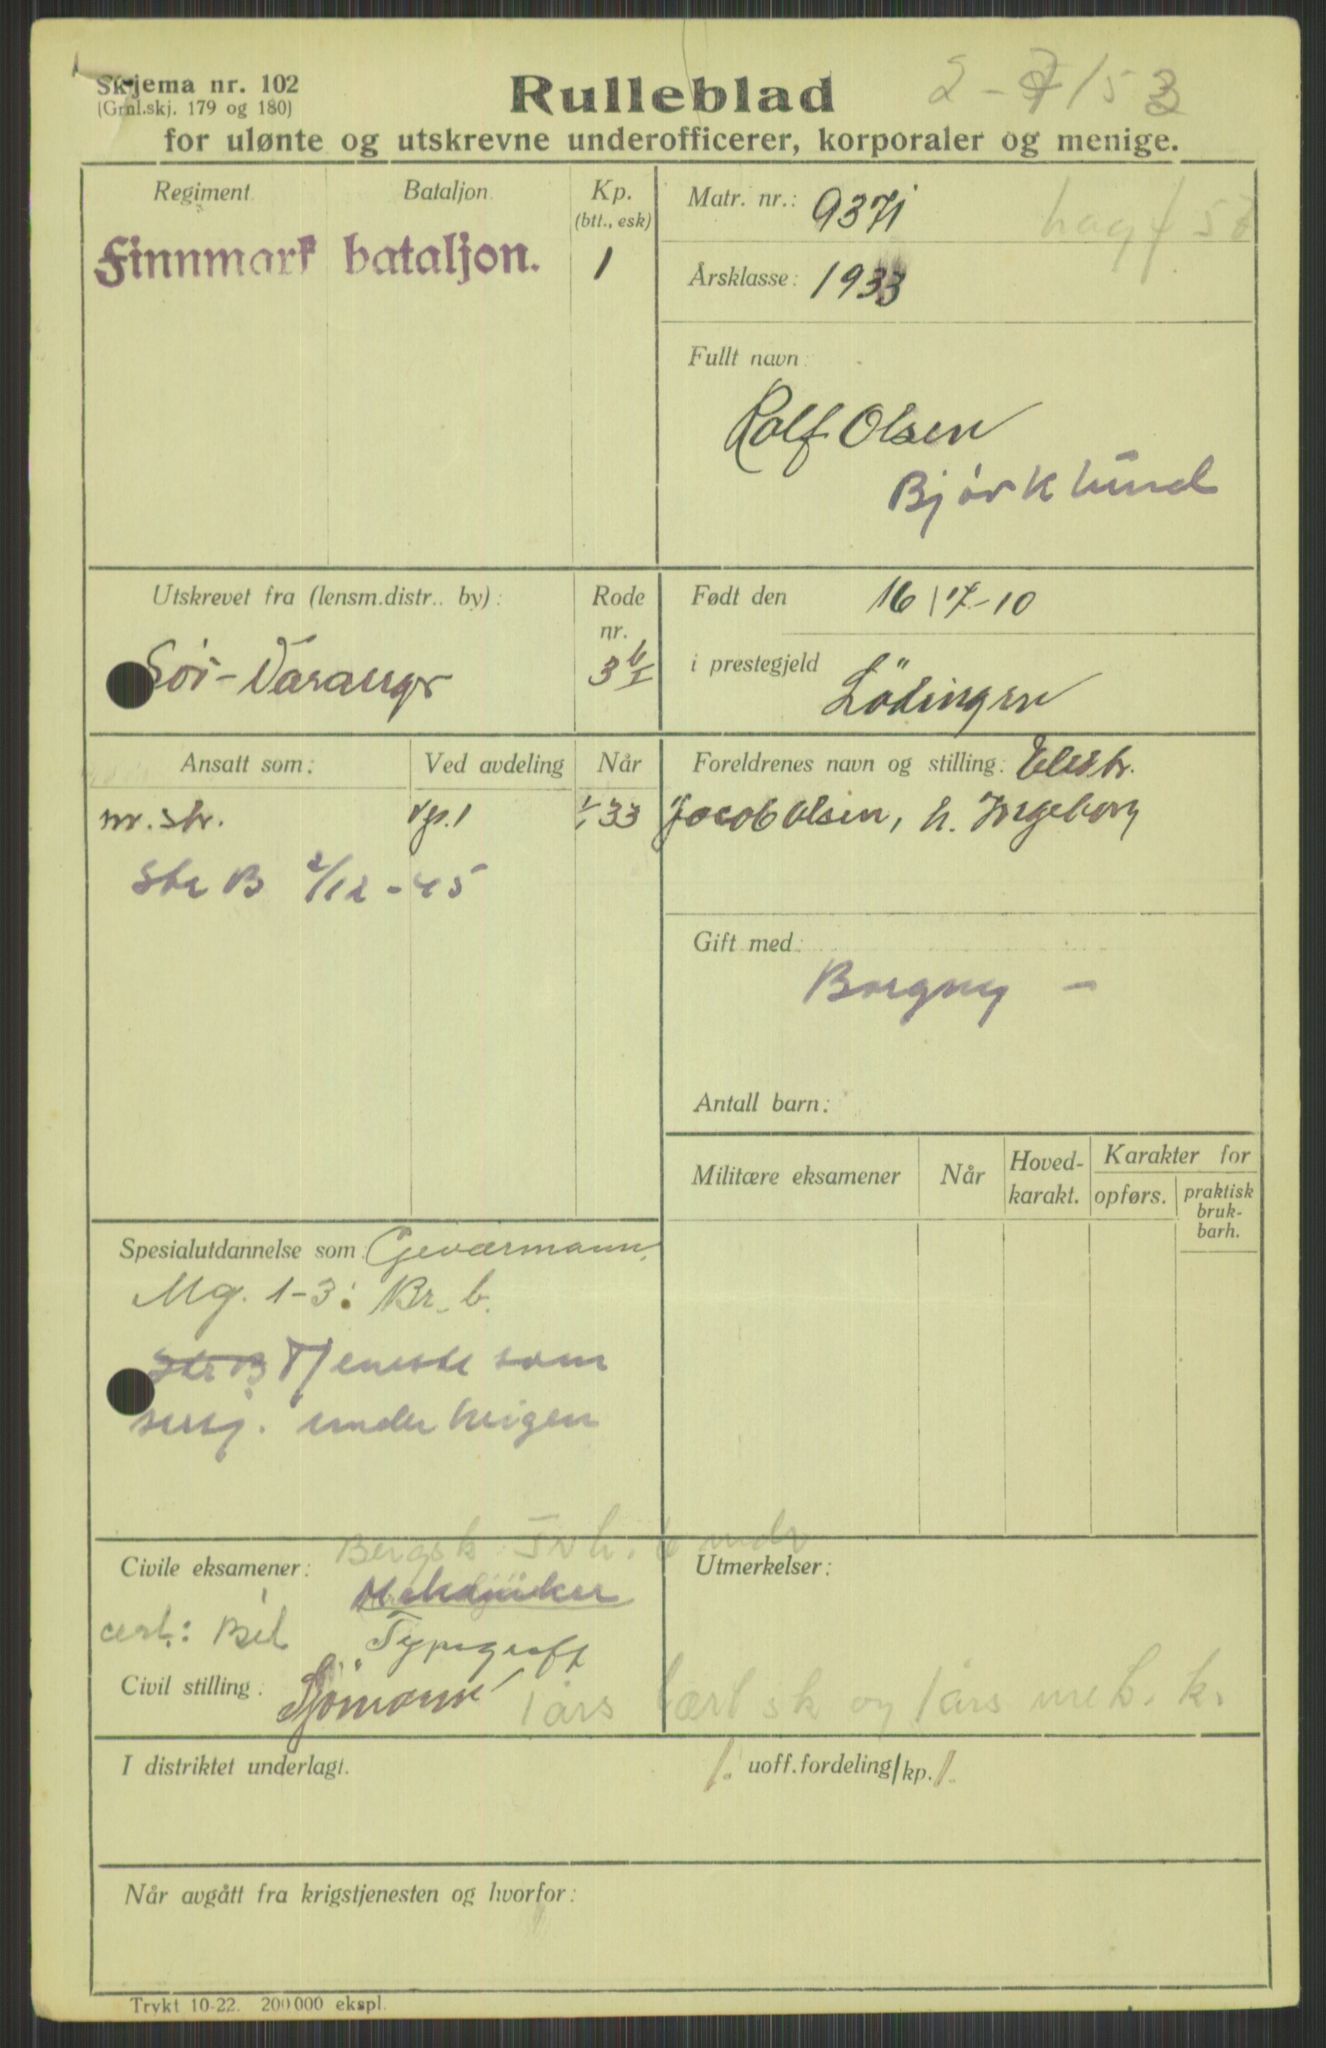 Skjema nr. 102
(Grnl.skj. 179 og 180)
Rulleblad
for ulønte og utskrevne underofficerer, korporaler og menige.
Regiment Bataljon Kp.
(btt., esk)
Finnmark bataljon. 1
Matr. nr.: 9371
Årsklasse: 1933
Fullt navn:
Rolf Olsen
Bjørklund
Utskrevet fra (lensm.distr.. by):
Rode
nr.
Sör-Varanger
Født den 16/7-10
i prestegjeld
Lödingen
Ansatt som: Ved avdeling Når
33
Str B 2/12-45
Foreldrenes navn og stilling:
Jacob Olsen, h. Ingeborg
Gift med:
Borgny -
Antall barn:
Militære eksamener Når Hoved-
karakt.
Karakter for
opførs. praktisk
bruk-
barh.
Spesialutdannelse som: Geværmann.
Mg. 1-3: Br. b.
Str B Tjeneste som
serg. under krigen
Civile eksamener:
Mekaniker
cert.: Bil
Typograff
Civil stilling: Sjömann
1 års sk og 1 års mek. k.
Utmerkelser:
I distriktet underlagt.
1. uoff.fordeling/kp. 1.
Når avgått fra krigstjenesten og hvorfor:
Trykt 10-22. 200 000 ekspl.